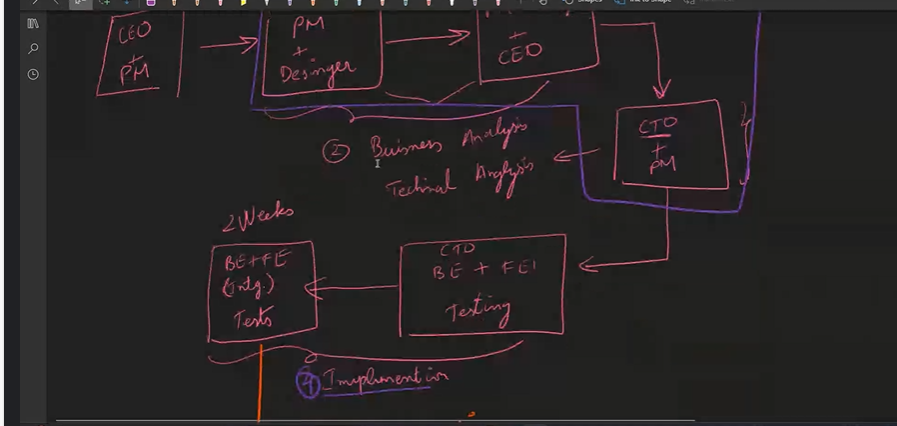 CEO
+
PM
PM
+
Desinger
+
CEO
CTO
+
PM
② Buisness Analysis
Techinal Analysis
2 Weeks
BE+FE
(Intg.)
Tests
CTO
BE + FE
Testing
Implimention